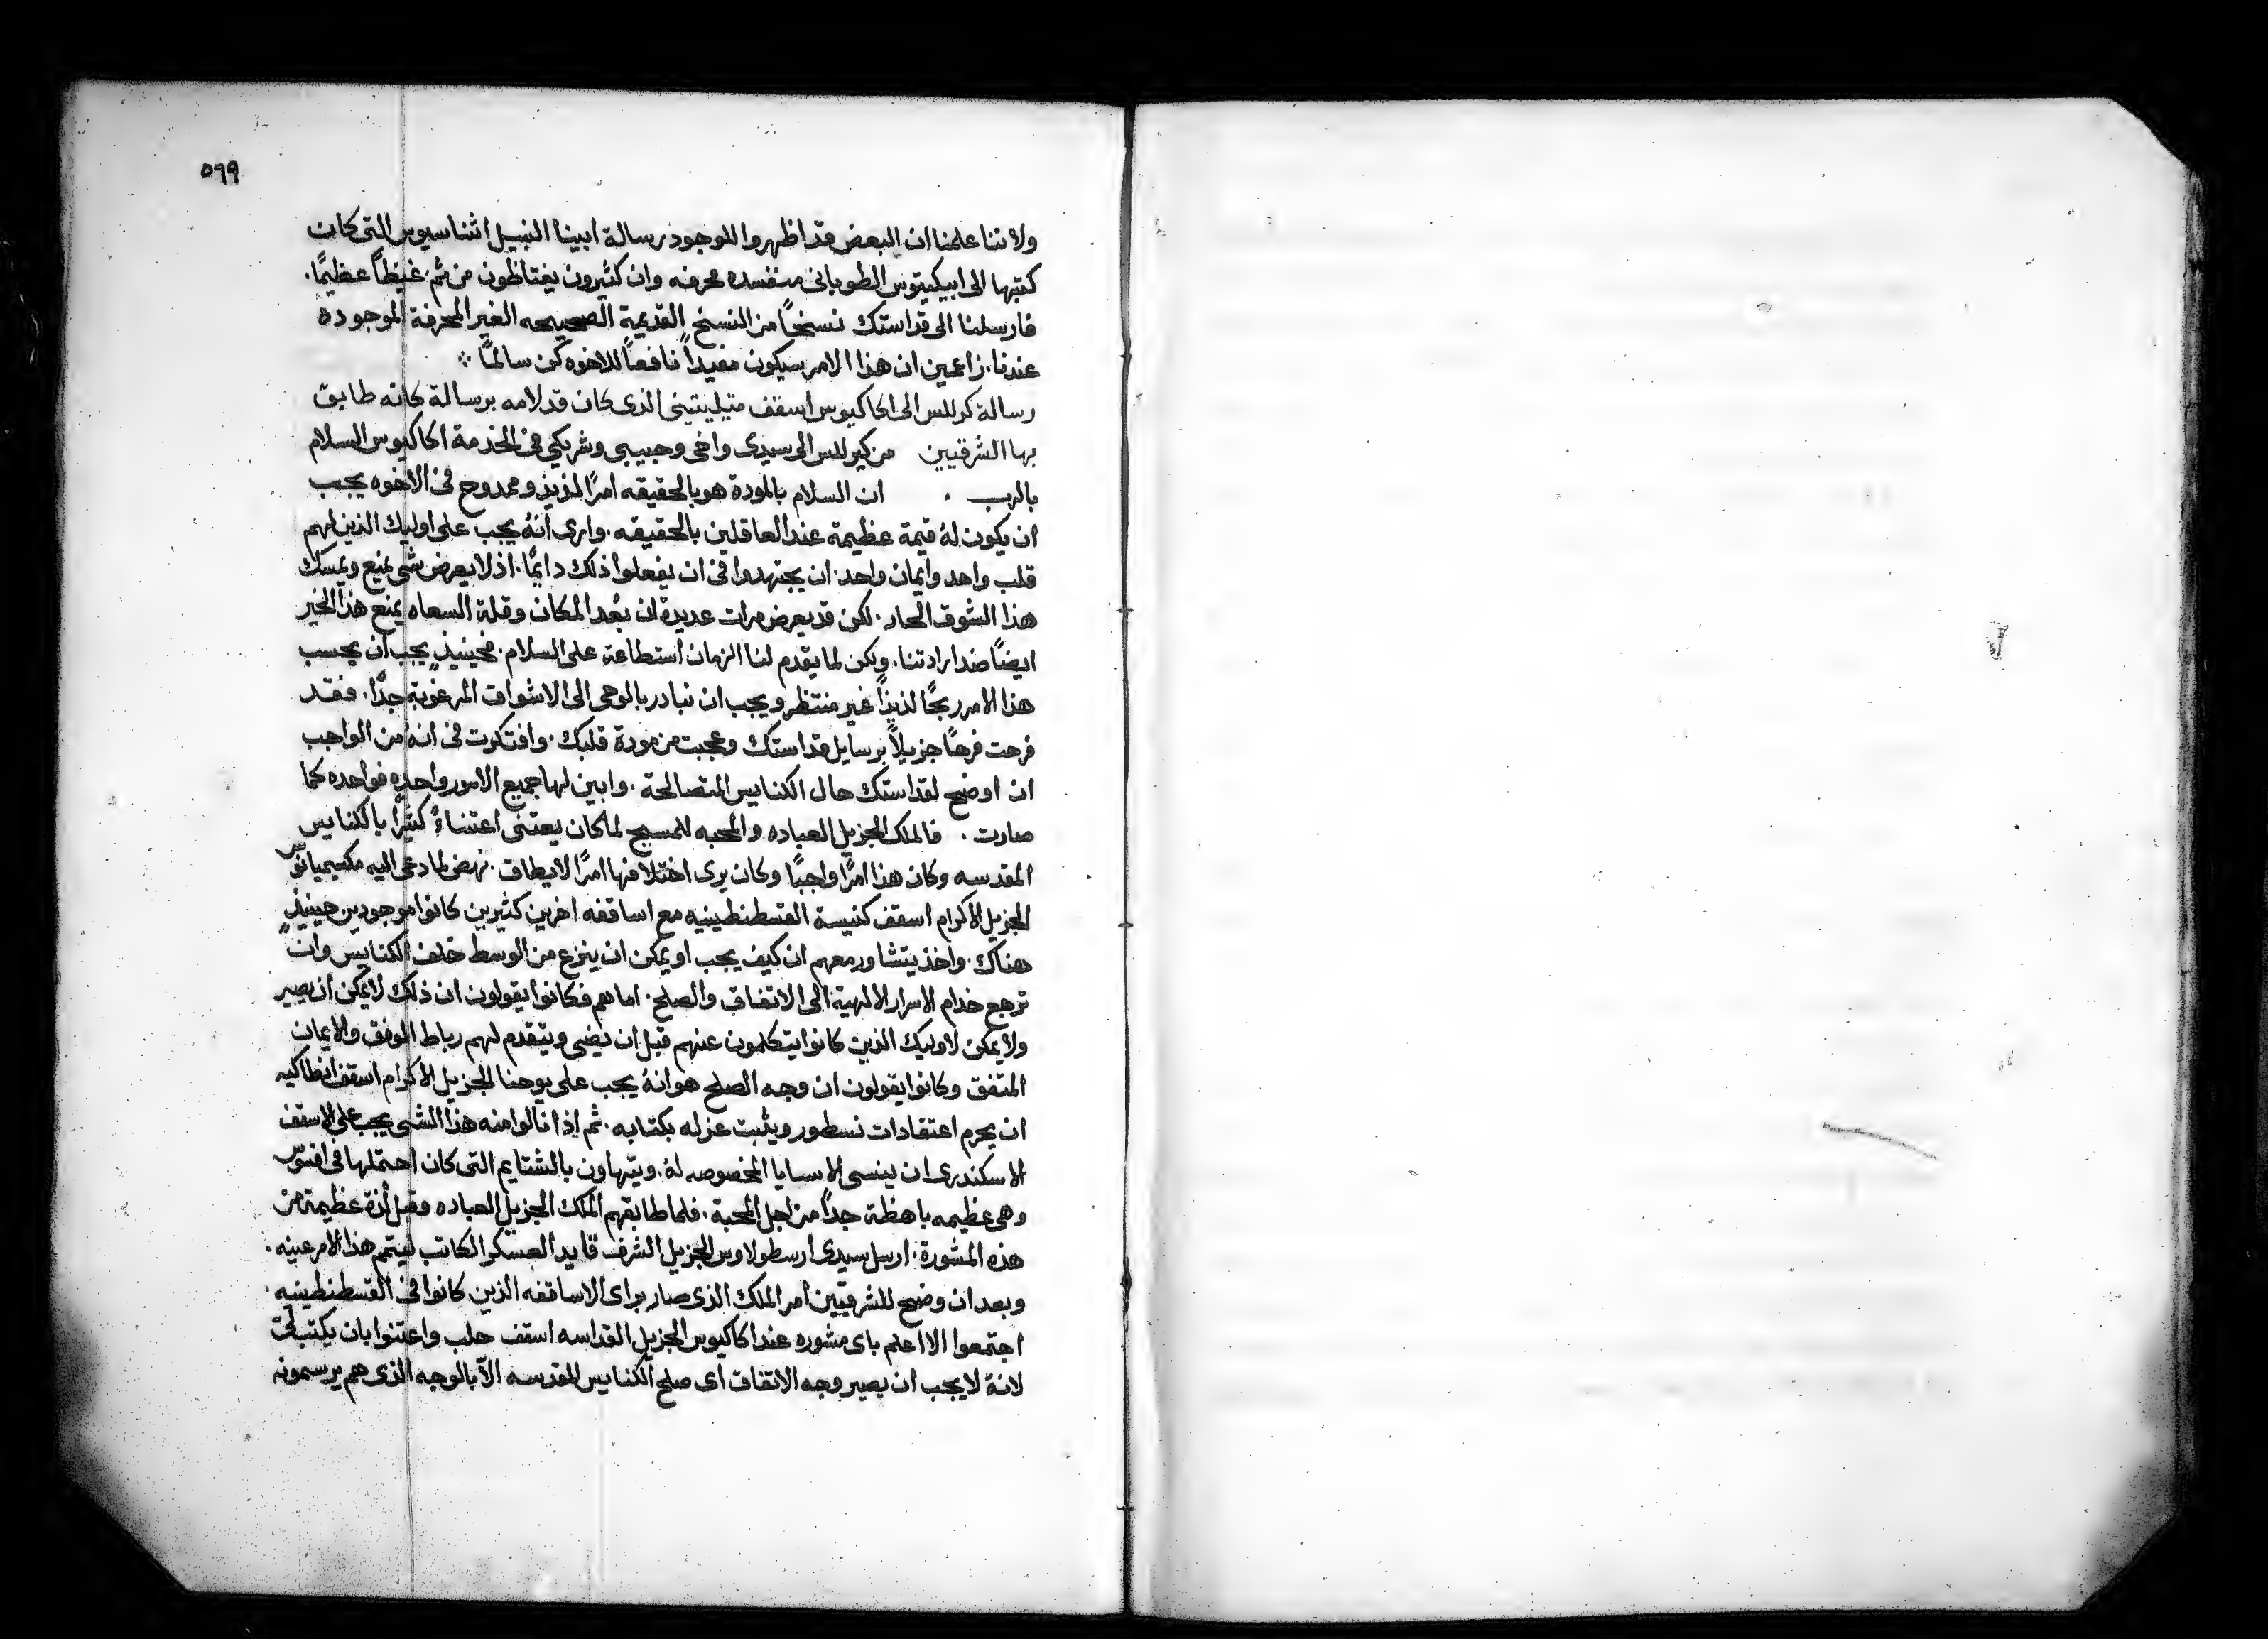 ٥٩٩
ولاننا علمنا ان البعض قد اظهروا للوجود رسالة ابينا النبيل اثناسيوس التى كان
كتبها الى ابيكيتوس الطوبانى منفسده محرفه وان كثيرون يغتاظون من ثم غيظاً عظيمًا.
فارسلنا الى قداستك نسخًا من النسخ القديمة الصحيحه الغير المحرفة الموجوده
عندنا. زاعمين ان هذا الامر سيكون مفيداً نافعاً للاخوه كن سالمًا
رسالة كرللس الى اكاكيوس اسقف متيليتينى الذى كان قد لامه برسالة كانه طابق
بها الشرقيين من كيرللس الى سيدى واخى وحبيبى وشريكى فى الخدمة اكاكيوس السلام
بالرب . ان السلام بالمودة هو بالحقيقه امرًا لذيذ وممدوح فى الاخوه يجب
ان يكون لهُ قيمة عظيمة عند العاقلين بالحقيقه. وارى انهُ يجب على اوليك الذين لهم
قلب واحد وايمان واحد. ان يجتهدوا فى ان يفعلوا ذلك دايمًا. اذ لا يعرض شى يمنع ويمسك
هذا الشوق الحار. لكن قد يعرض مرات عديدة ان بُعد المكان وقلة السعاه يمنع هذا الخير
ايضًا ضد ارادتنا. ولكن لما يقدم لنا الزمان استطاعة على السلام. فحينيذٍ يجب ان يحسب
هذا الامر ربحًا لذيذاً غير منتظر ويجب ان نبادر بالوحى الى الاشواق المرغوبة جدًا. فقد
فرحت فرحًا جزيلاً برسايل قداستك وعجبت من مودة قلبك. وافتكرت فى انه من الواجب
ان اوضح لقداستك حال الكنايس المتصالحة. وابين لها جميع الامور واحده فواحده كما
صارت . فالملك الجزيل العباده والمحبه للمسيح لما كان يعتنى اعتناءً كثيرًا بالكنايس
المقدسه وكان هذا امرًا واجبًا وكان يرى اختلافها امرًا لا يطاق. نهض لما دعى اليه مكسيميانوس
الجزيل الاكرام اسقف كنيسة القسطنطينيه مع اساقفه اخرين كثيرين كانوا موجودين حينيذٍ
هناك. واخذ يتشاور معهم ان كيف يجب او يمكن ان ينزع من الوسط خلف الكنايس وان
ترجع خدام الاسرار الالهية الى الاتفاق والصلح. اما هم فكانوا يقولون ان ذلك لا يمكن ان يصير
ولا يمكن لاوليك الذين كانوا يتكلمون عنهم قبل ان يضى ويتقدم لهم رباط الوفق والايمان
المتفق وكانوا يقولون ان وجه الصلح هو انهُ يجب على يوحنا الجزيل الاكرام اسقف انطاكيه
ان يحرم اعتقادات نسطور ويثبت عزله بكتابه. ثم اذا نالوا منه هذا الشى يجب على الاسقف
الاسكندرى ان ينسى الاسايا المخصوصه لهُ. ويتهاون بالشتايم التى كان احتملها فى افسوس
وهى عظيمه باهظة جداً من اجل المحبة. فلما طابقهم الملك الجزيل العباده وقبل لذة عظيمة من
هذه المشورة. ارسل سيدى ارسطولاوس الجزيل الشرف قايد العسكر الكاتب ليتمم هذا الامر عينه.
وبعد ان وضح للشرقيين امر الملك الذى صار براى الاساقفه الذين كانوا فى القسطنطينيه.
اجتمعوا الا اعلم باى مشوره عند اكاكيوس الجزيل القداسه اسقف حلب واعتنوا بان يكتب لى
لانة لا يجب ان يصير وجه الاتفاق اى صلح الكنايس المقدسه الاّ بالوجه الذى هم يرسمونه